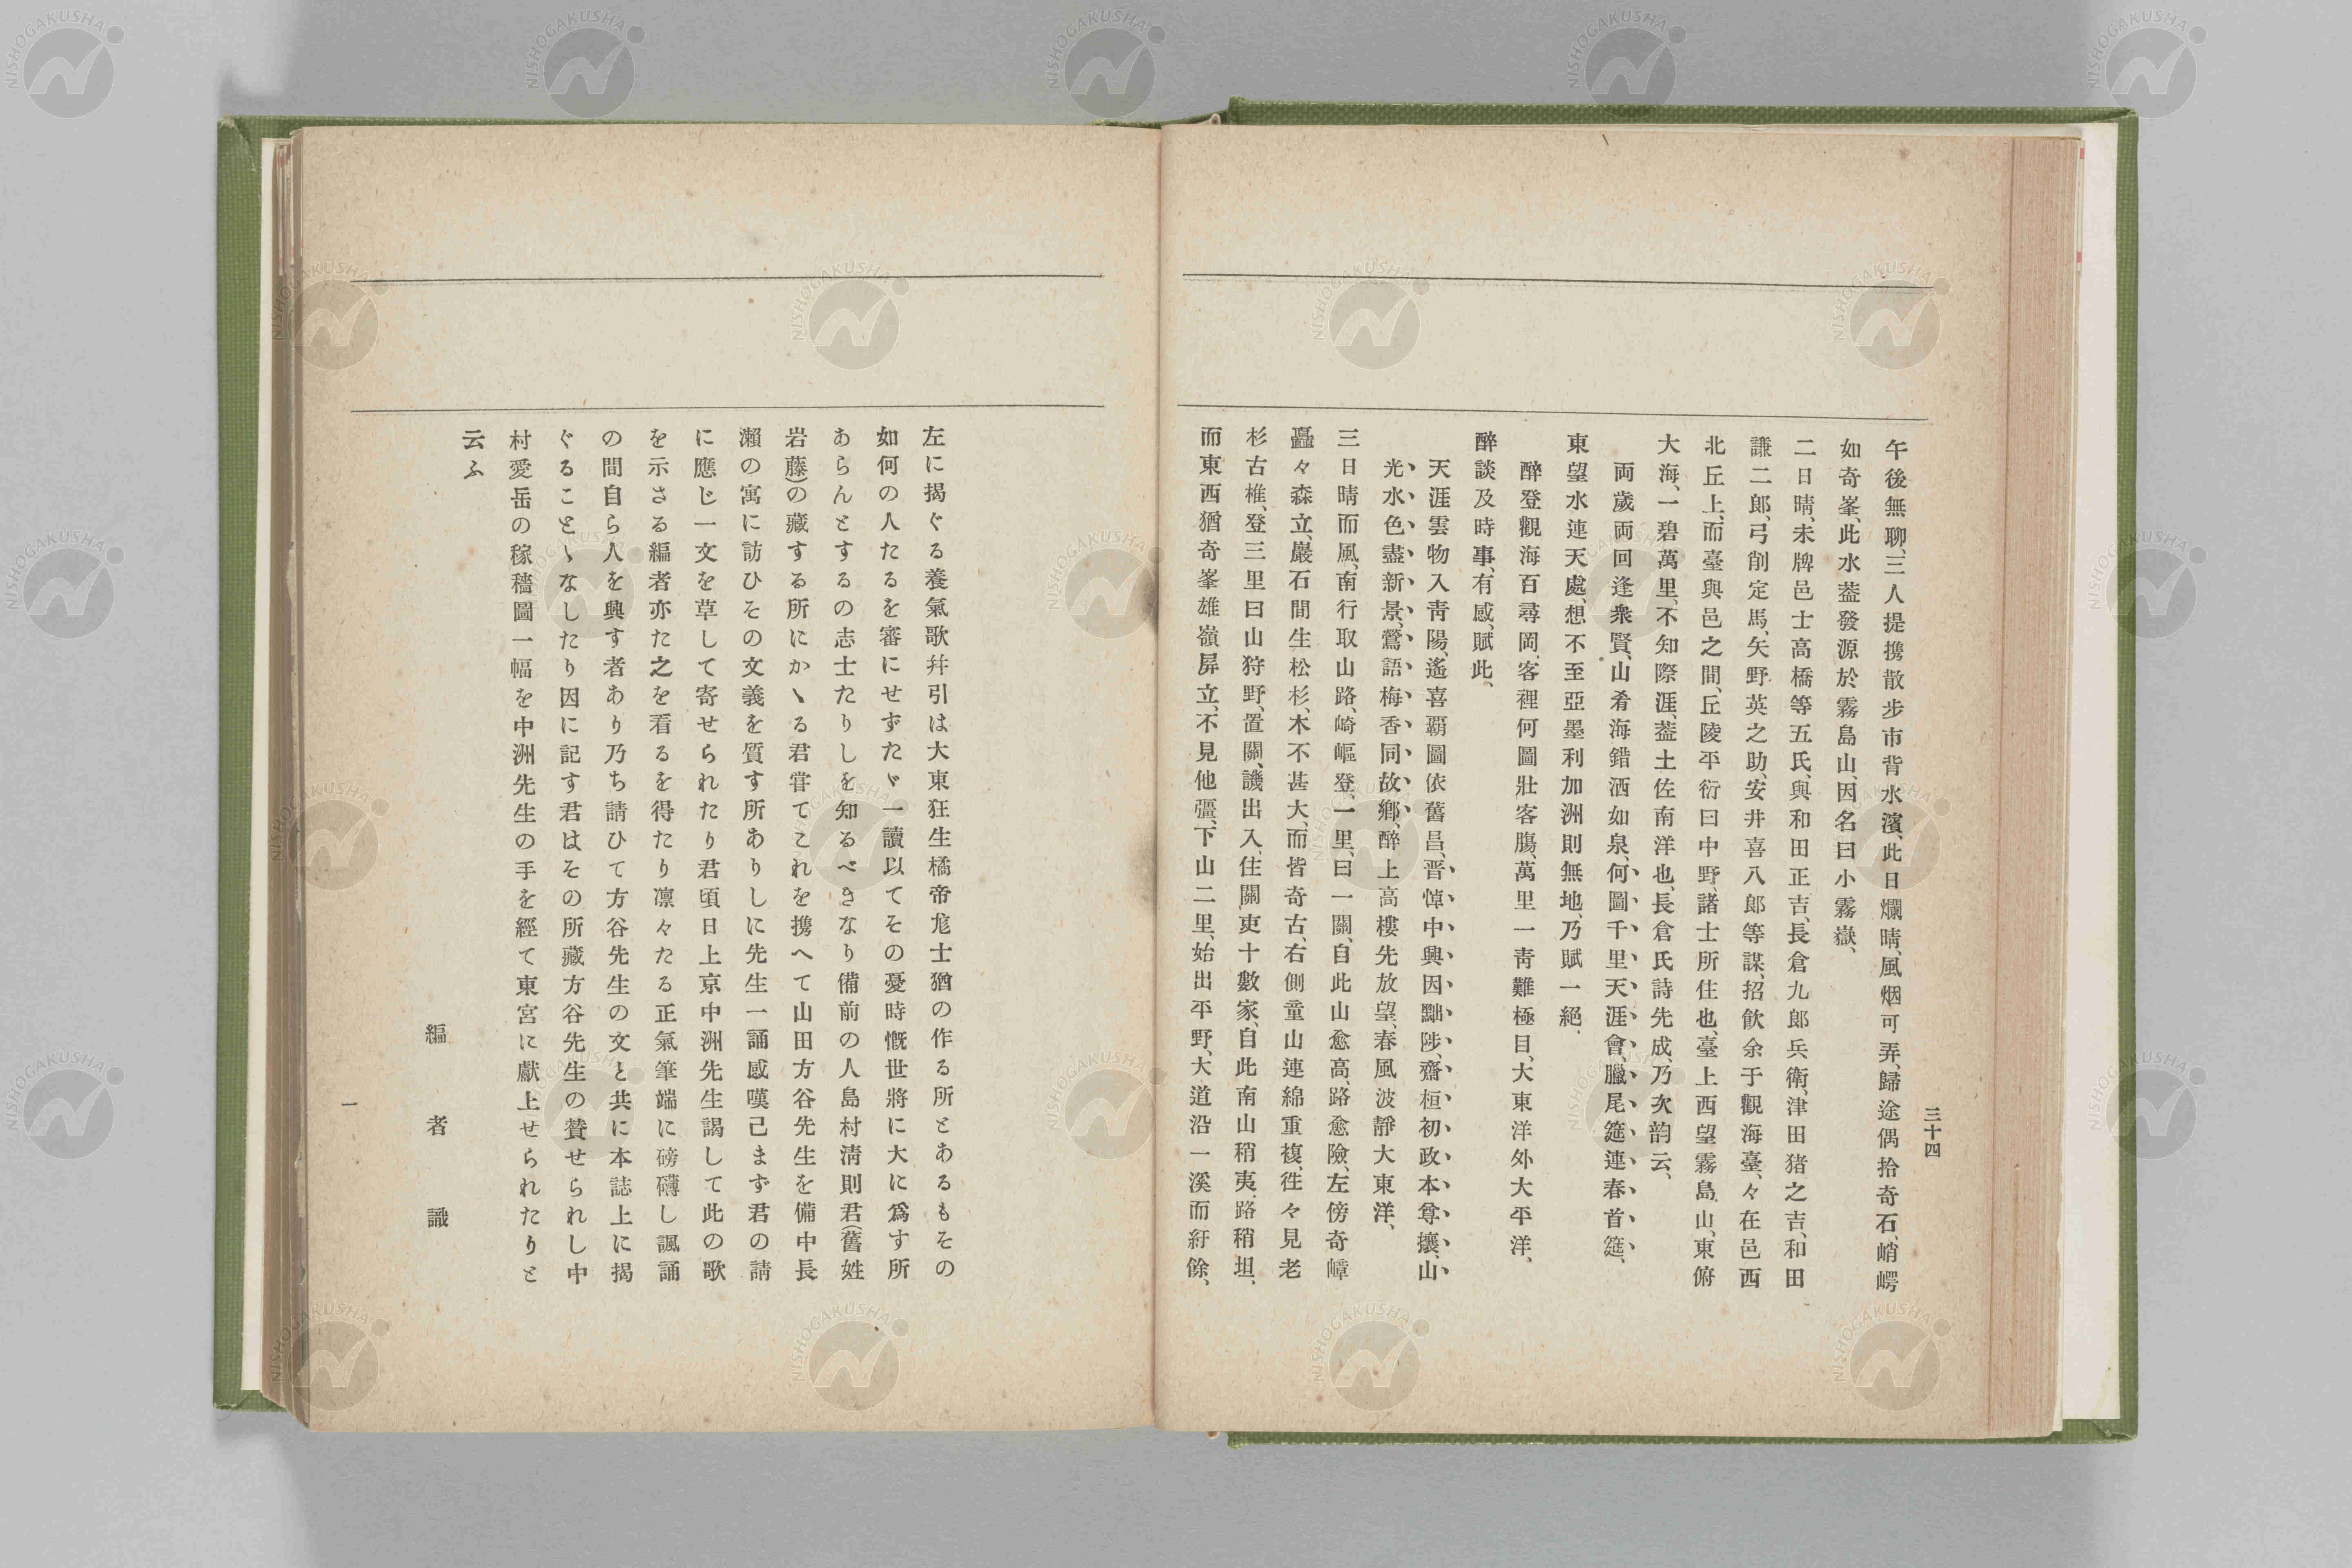 三十四
午後無聊、三人提携散步市背水濱、此日爛晴、風烟可弄、歸途偶拾奇石、峭崿
如奇峯、此水葢發源於霧島山、因名曰小霧嶽、
二日晴、未牌邑士高橋等五氏、與和田正吉、長倉九郎兵衛、津田猪之吉、和田
謙二郎、弓削定馬、矢野英之助、安井喜八郎等謀、招飲余于觀海臺、々在邑西
北丘上、而臺與邑之間、丘陵平衍曰中野、諸士所住也、臺上西望霧島山、東俯
大海、一碧萬里、不知際涯、葢土佐南洋也、長倉氏詩先成、乃次韵云、
両歲両回逢衆賢、山肴海錯洒如泉、何圖千里天涯會、臘尾筵連春首筵、
東望水連天處、想不至亞墨利加洲則無地、乃賦一絕、
醉登觀海百尋岡、客裡何圖壯客膓、萬里一靑難極目、大東洋外大平洋、
醉談及時事、有感、賦此、
天涯雲物入靑陽、遙喜覇圖依舊昌、晋悼中興因黜陟、齋桓初政本尊攘、山
光水色盡新景、鶯語梅香同故鄕、醉上高樓先放望、春風波靜大東洋、
三日晴而風、南行取山路、崎嶇登、一里、曰一關、自此山愈高、路愈險、左傍奇嶂
矗々森立、巖石間生松杉、木不甚大、而皆奇古、右側童山連綿重複、徃々見老
杉古椎、登三里曰山狩野、置關、譏出入、住關吏十數家、自此南山稍夷、路稍坦、
而東西猶奇峯雄嶺屏立、不見他彊、下山二里、始出平野、大道沿一溪而紆餘、
左に揭ぐる養氣歌幷引は大東狂生橘帝尨士猶の作る所とあるもその
如何の人たるを審にせずたゞ一讀以てその憂時慨世將に大に爲す所
あらんとするの志士たりしを知るべきなり備前の人島村淸則君(舊姓
岩藤)の藏する所にかゝる君甞てこれを携へて山田方谷先生を備中長
瀨の寓に訪ひその文義を質す所ありしに先生一誦感嘆已まず君の請
に應じ一文を草して寄せられたり君頃日上京中洲先生謁して此の歌
を示さる編者亦た之を看るを得たり凛々たる正氣筆端に磅礴し諷誦
の間自ら人を興す者あり乃ち請ひて方谷先生の文と共に本誌上に揭
ぐることゝなしたり因に記す君はその所藏方谷先生の賛せられし中
村愛岳の稼穡圖一幅を中洲先生の手を經て東宮に獻上せられたりと
云ふ
編者識
一
NISHOGAKUSHA